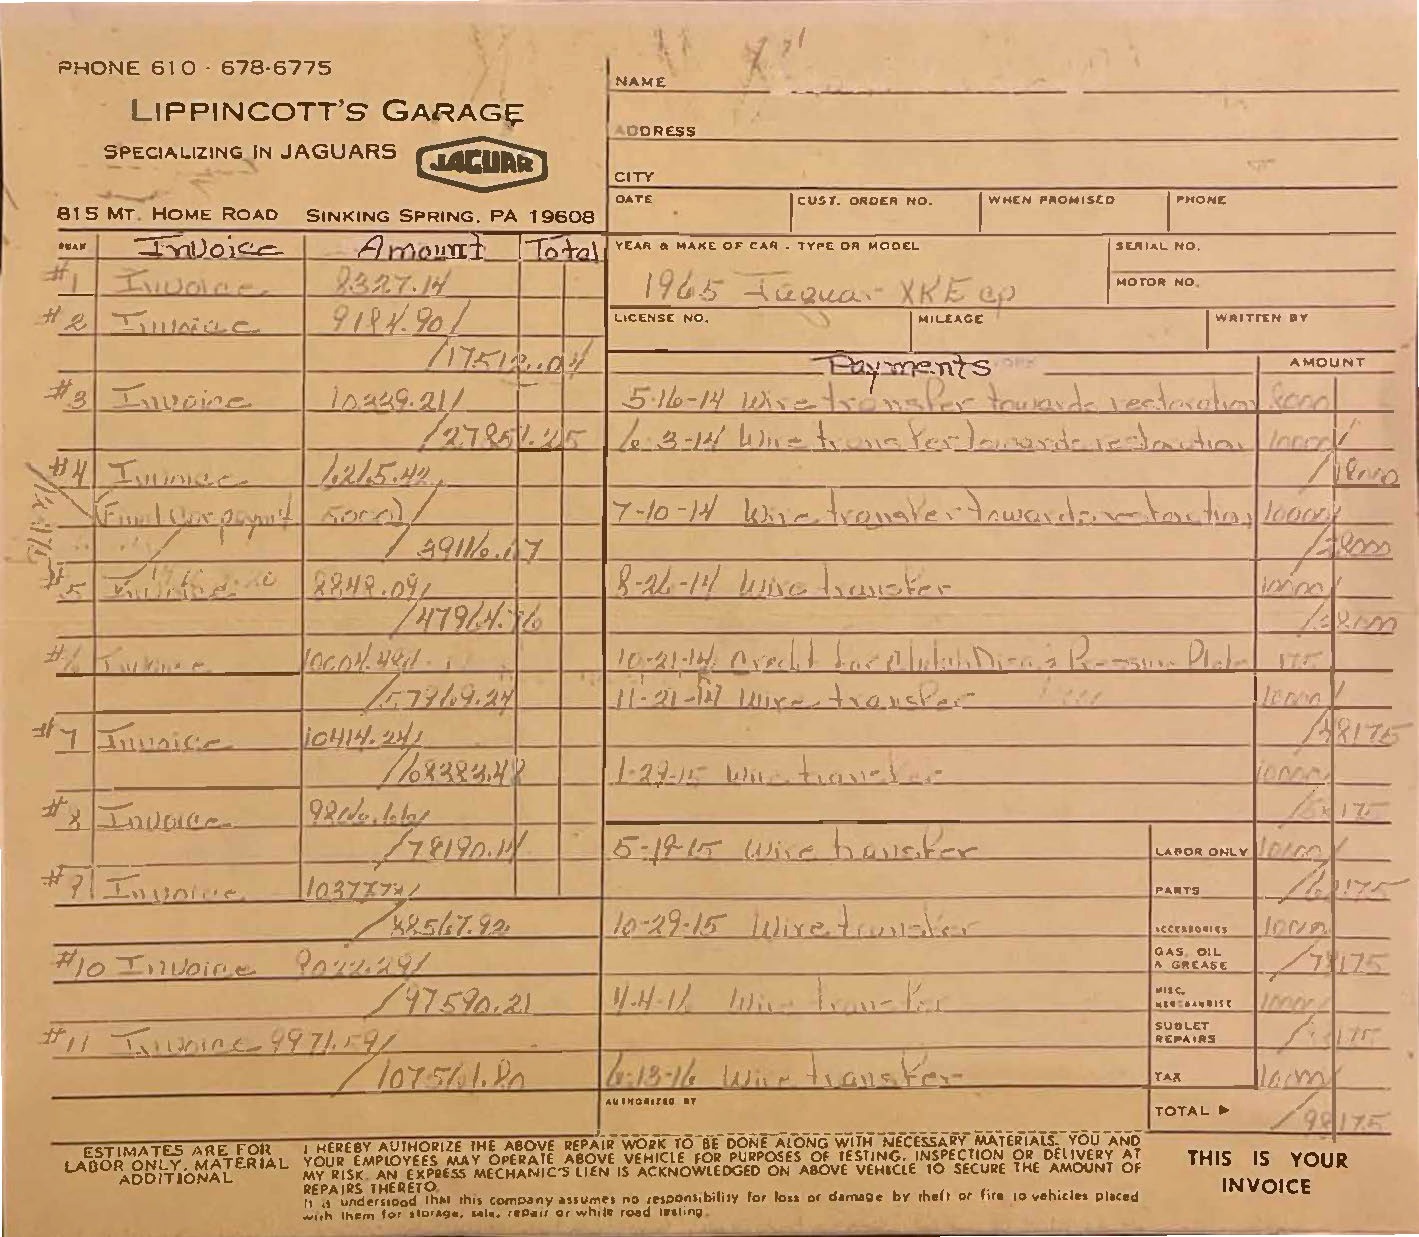 PHONE 610 - 678-6775
LIPPINCOTT'S GARAGE
SPECIALIZING IN JAGUARS
JAGUAR
815 MT. HOME ROAD SINKING SPRING, PA 19608
NAME
ADDRESS
CITY
DATE CUST. ORDER NO. WHEN PROMISED PHONE
YEAR & MAKE OF CAR - TYPE OR MODEL SERIAL NO.
1965 Jaguar XKE cp
MOTOR NO.
LICENSE NO. MILEAGE WRITTEN BY
QUAN Invoice Amount Total
#1 Invoice 8327.14
#2 Invoice 9184.90
17512.04
#3 Invoice 10339.21
27851.25
#4 Invoice 6265.42
5000
39116.67
#5 Invoice 8848.09
47964.76
#6 Invoice 10004.48
57969.24
#7 Invoice 10414.24
68383.48
#8 Invoice 9806.66
78190.14
#9 Invoice 10377.78
88567.92
#10 Invoice 9022.29
97590.21
#11 Invoice 9971.59
107561.80
Payments AMOUNT
5-16-14 Wire transfer towards restoration 8000
6-3-14 Wire transfer towards restoration 10000
18000
7-10-14 Wire transfer towards restoration 10000
28000
8-26-14 Wire transfer 10000
38000
10-21-14 Credit for Clutch Disc & Pressure Plate 175
11-21-14 Wire transfer 10000
48175
1-29-15 Wire transfer 10000
58175
5-19-15 Wire transfer LABOR ONLY 10000
PARTS 68175
10-29-15 Wire transfer ACCESSORIES 10000
GAS, OIL & GREASE 78175
4-4-16 Wire transfer MISC. MERCHANDISE 10000
SUBLET REPAIRS 88175
6-13-16 Wire transfer TAX 10000
AUTHORIZED BY
TOTAL ▶ 98175
ESTIMATES ARE FOR
LABOR ONLY, MATERIAL
ADDITIONAL
I HEREBY AUTHORIZE THE ABOVE REPAIR WORK TO BE DONE ALONG WITH NECESSARY MATERIALS. YOU AND
YOUR EMPLOYEES MAY OPERATE ABOVE VEHICLE FOR PURPOSES OF TESTING, INSPECTION OR DELIVERY AT
MY RISK. AN EXPRESS MECHANIC'S LIEN IS ACKNOWLEDGED ON ABOVE VEHICLE TO SECURE THE AMOUNT OF
REPAIRS THERETO.
It is understood that this company assumes no responsibility for loss or damage by theft or fire to vehicles placed
with them for storage, sale, repair or while road testing.
THIS IS YOUR
INVOICE